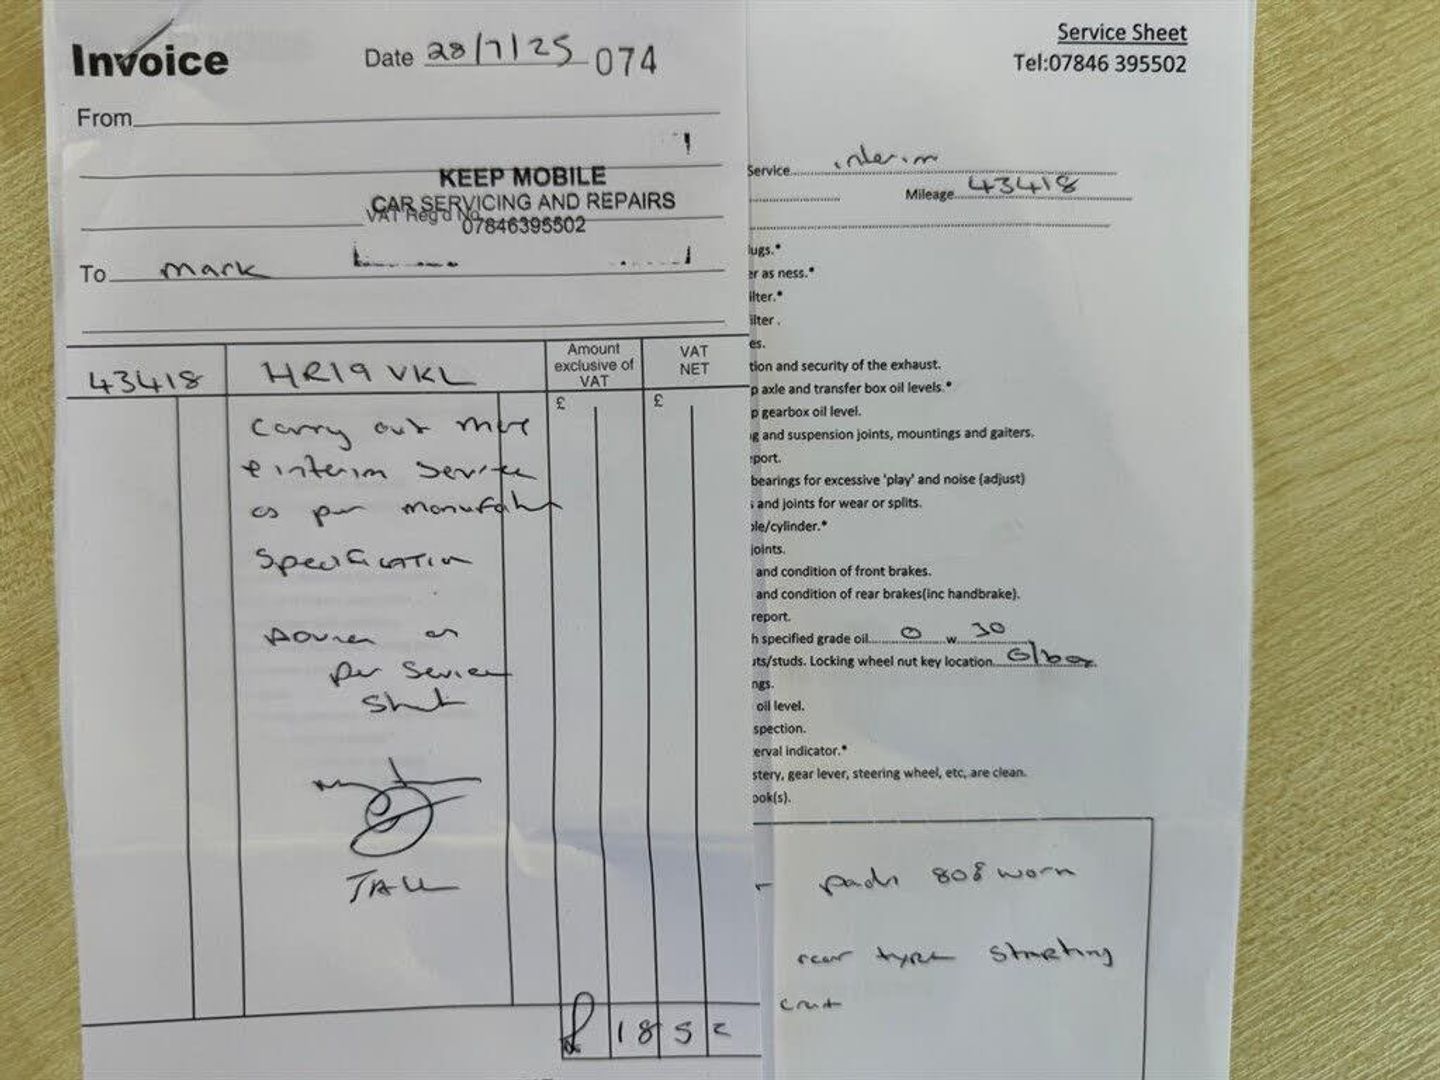 Invoice
Date 28/7/25 074
From
KEEP MOBILE
CAR SERVICING AND REPAIRS
VAT Reg'd No
07846395502
To mark
Amount exclusive of VAT
VAT NET
43418 HR19 VKL
£ £
Carry out
interim service
as per
Specification
per
£ 185
Service Sheet
Tel:07846 395502
Service interim
Mileage 43418
ugs.*
er as ness.*
ilter.*
ilter .
es.
tion and security of the exhaust.
p axle and transfer box oil levels.*
p gearbox oil level.
g and suspension joints, mountings and gaiters.
port.
bearings for excessive 'play' and noise (adjust)
and joints for wear or splits.
le/cylinder.*
joints.
and condition of front brakes.
and condition of rear brakes(inc handbrake).
report.
h specified grade oil 0 w 30
uts/studs. Locking wheel nut key location G/box
ngs.
oil level.
spection.
erval indicator.*
stery, gear lever, steering wheel, etc, are clean.
ook(s).
pads 80% worn
rear tyre starting